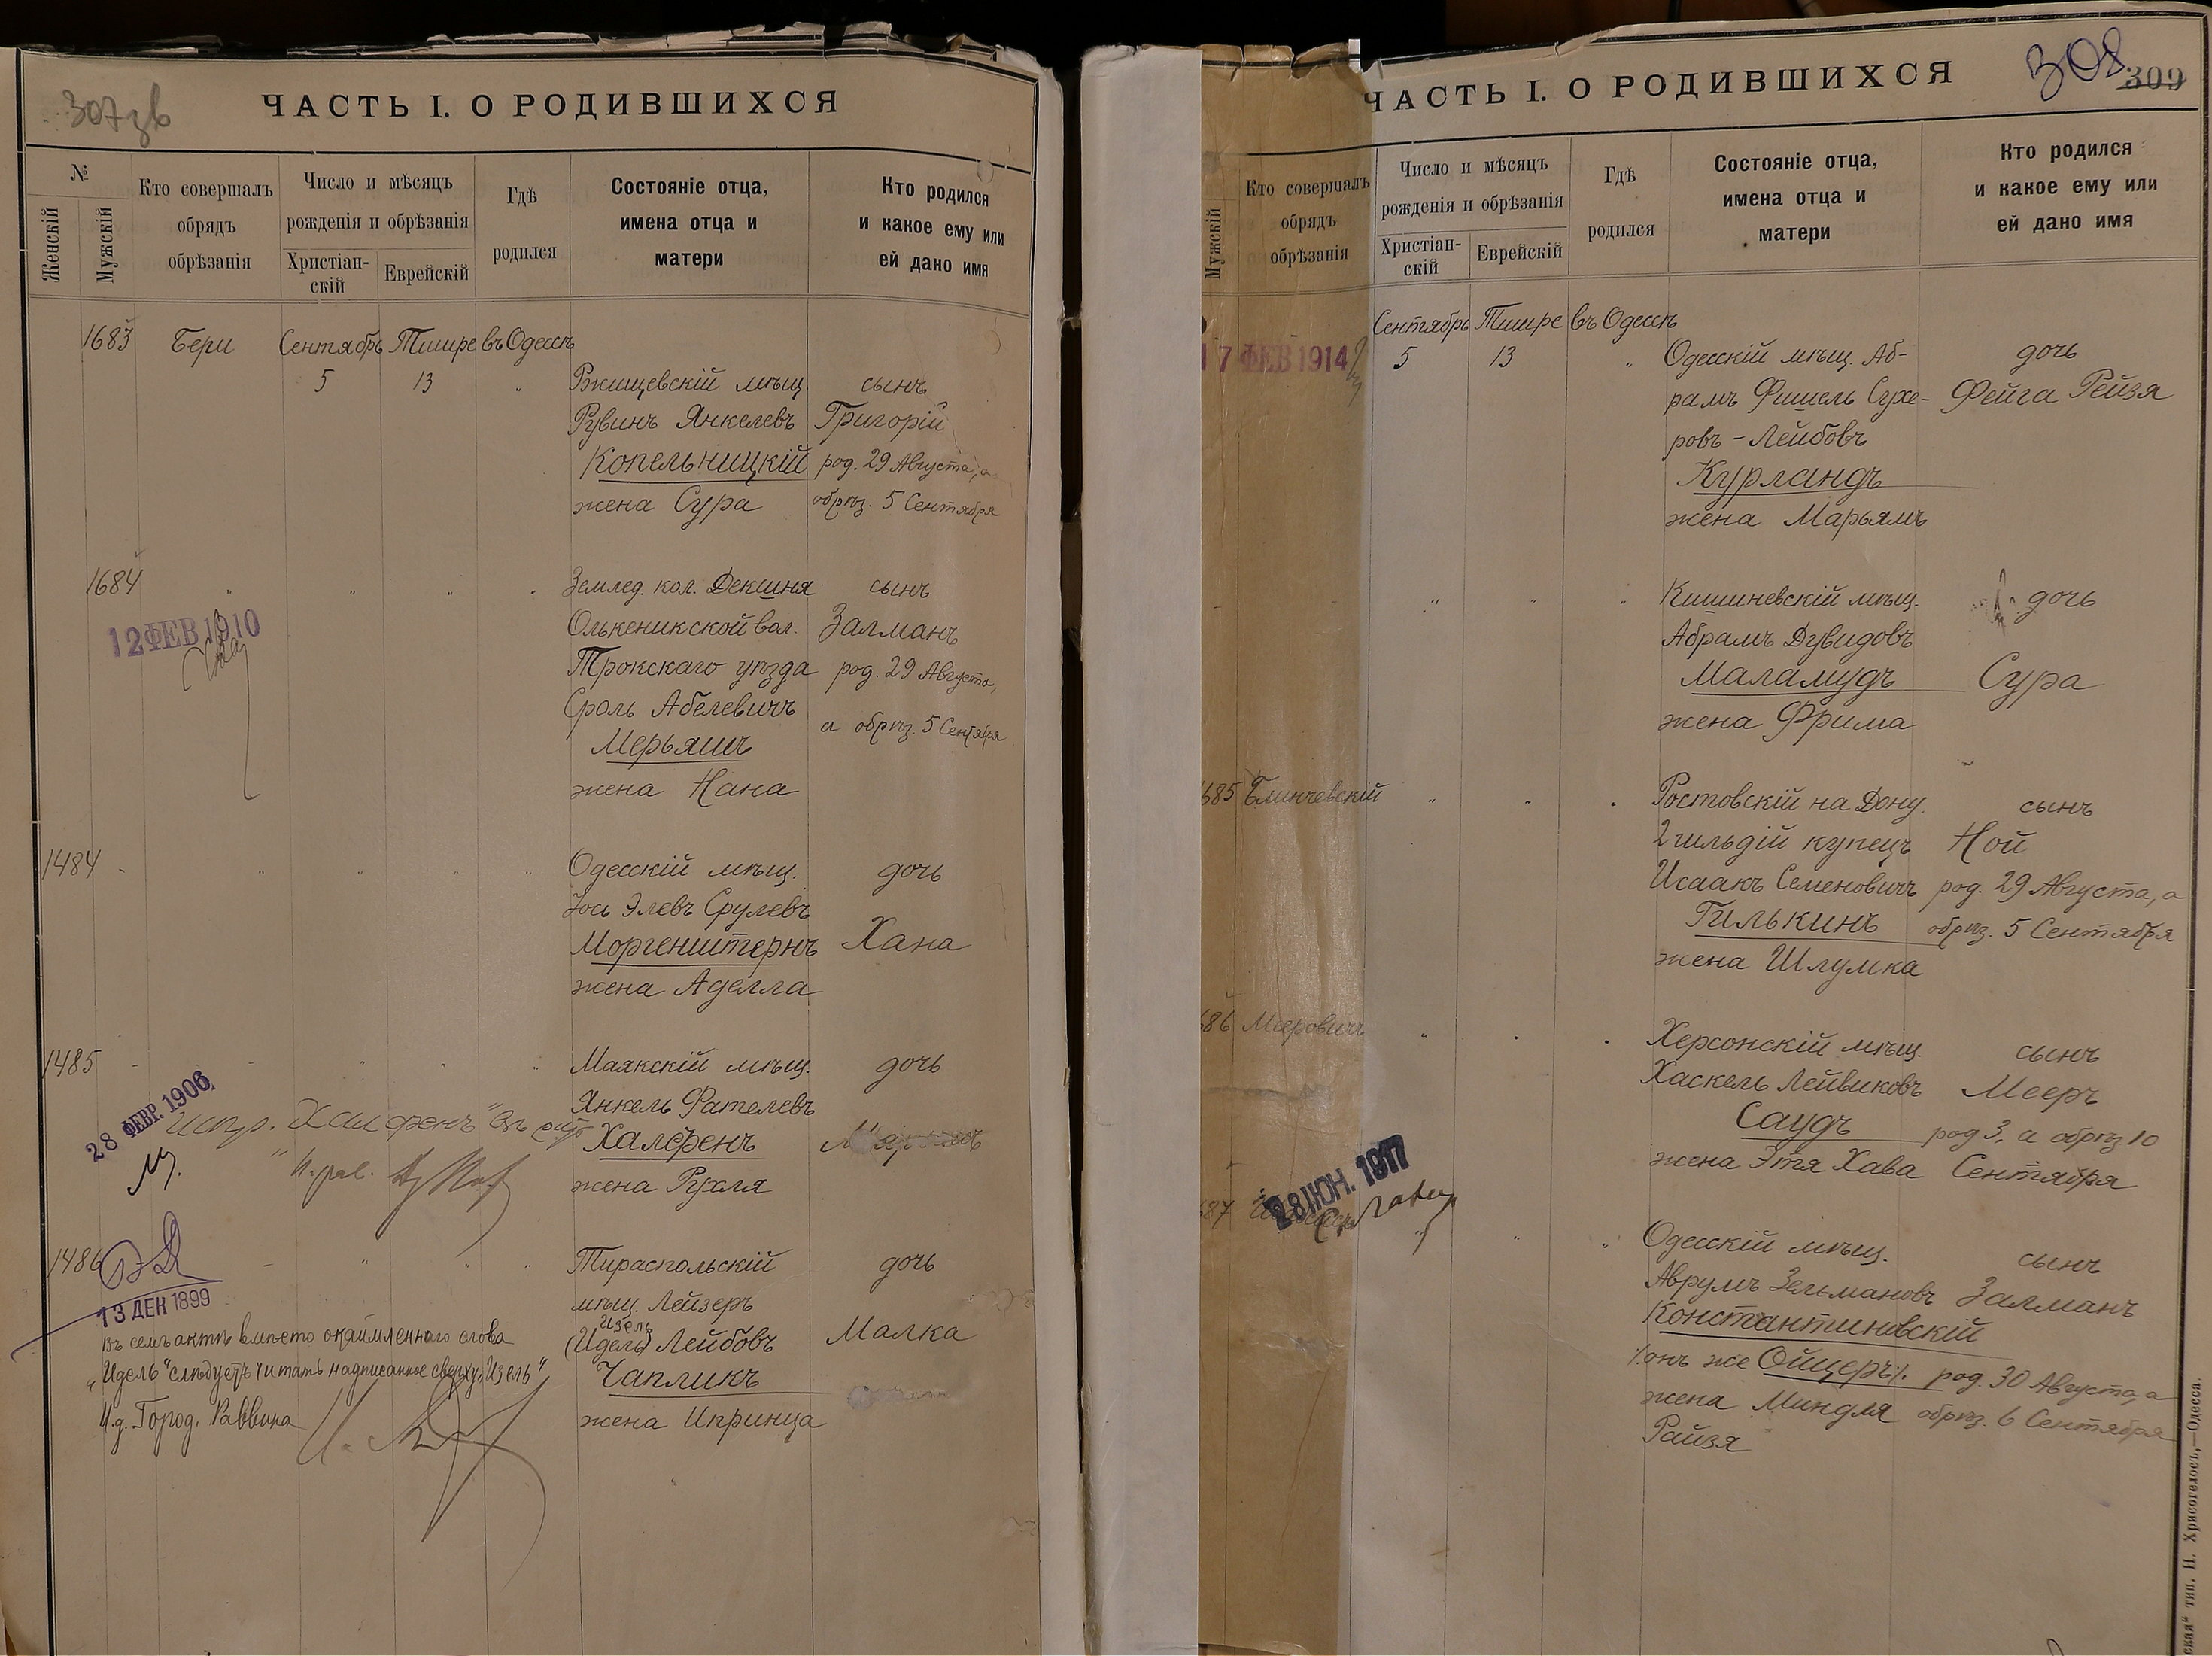 307 зв
ЧАСТЬ I. О РОДИВШИХСЯ
№
Женскій
Мужскій
Кто совершалъ
обрядъ
обрѣзанія
Число и мѣсяцъ
рожденія и обрѣзанія
Христіан-
скій
Еврейскій
Гдѣ
родился
Состояніе отца,
имена отца и
матери
Кто родился
и какое ему или
ей дано имя
1683 Бери Сентябрь Тишре въ Одессѣ
5 13 " Ржищевскій мѣщ. сынъ
Рувинъ Янкелевъ Григорій
Копельницкій род. 29 Августа, а
жена Сура обрѣз. 5 Сентября
1684 " " " " Землед. кол. Декшня сынъ
12 ФЕВ 1910
Олькеникской вол. Залманъ
Трокскаго уѣзда род. 29 Августа,
Сроль Абелевичъ а обрѣз. 5 Сентября
Мерьяшъ
жена Хана
1484 - " " " " Одесскій мѣщ. дочь
Іось Элевъ Срулевъ
Моргенштернъ Хана
жена Аделла
1485 - - " " " Маякскій мѣщ. дочь
28 ФЕВР. 1906
Янкель Фателевъ
Испр. "Халфенъ"
Халфенъ
И. рав.
жена Рухля
1486 - " " " Тираспольскій дочь
13 ДЕК 1899
мѣщ. Лейзеръ
Изель
(Идель) Лейбовъ Малка
Чапликъ
жена Ипринца
въ семъ актѣ вмѣсто окаймленнаго слова
"Идель" слѣдуетъ читать надписанное сверху "Изель"
И.д. Город. Раввина
308
309
ЧАСТЬ I. О РОДИВШИХСЯ
Мужскій
Кто совершалъ
обрядъ
обрѣзанія
Число и мѣсяцъ
рожденія и обрѣзанія
Христіан-
скій
Еврейскій
Гдѣ
родился
Состояніе отца,
имена отца и
матери
Кто родился
и какое ему или
ей дано имя
Сентябрь Тишре въ Одессѣ
17 ФЕВ 1914
5 13 " Одесскій мѣщ. Аб- дочь
рамъ Фишель Сухе- Фейга Рейзя
ровъ-Лейбовъ
Курландъ
жена Марьямъ
" " " Кишиневскій мѣщ. дочь
Абрамъ Дувидовъ
Маламудъ Сура
жена Фрима
685 Блинчевскій " " " Ростовскій на Дону сынъ
2 гильдій купецъ Ной
Исаакъ Семеновичъ род. 29 Августа, а
Гилькинъ обрѣз. 5 Сентября
жена Шлумка
686 Мееровичъ " " " Херсонскій мѣщ. сынъ
Хаскель Лейвиковъ Мееръ
Саудъ род 3, а обрѣз 10
жена Этя Хава Сентября
28 ІЮН. 1917
687 " " " Одесскій мѣщ. сынъ
Аврумъ Зельмановъ Залманъ
Константиновскій
/.онъ же Ойцеръ/. род. 30 Августа, а
жена Миндля обрѣз. 6 Сентября
Райзя
ская" тип. Н. Хрисогелосъ,—Одесса.